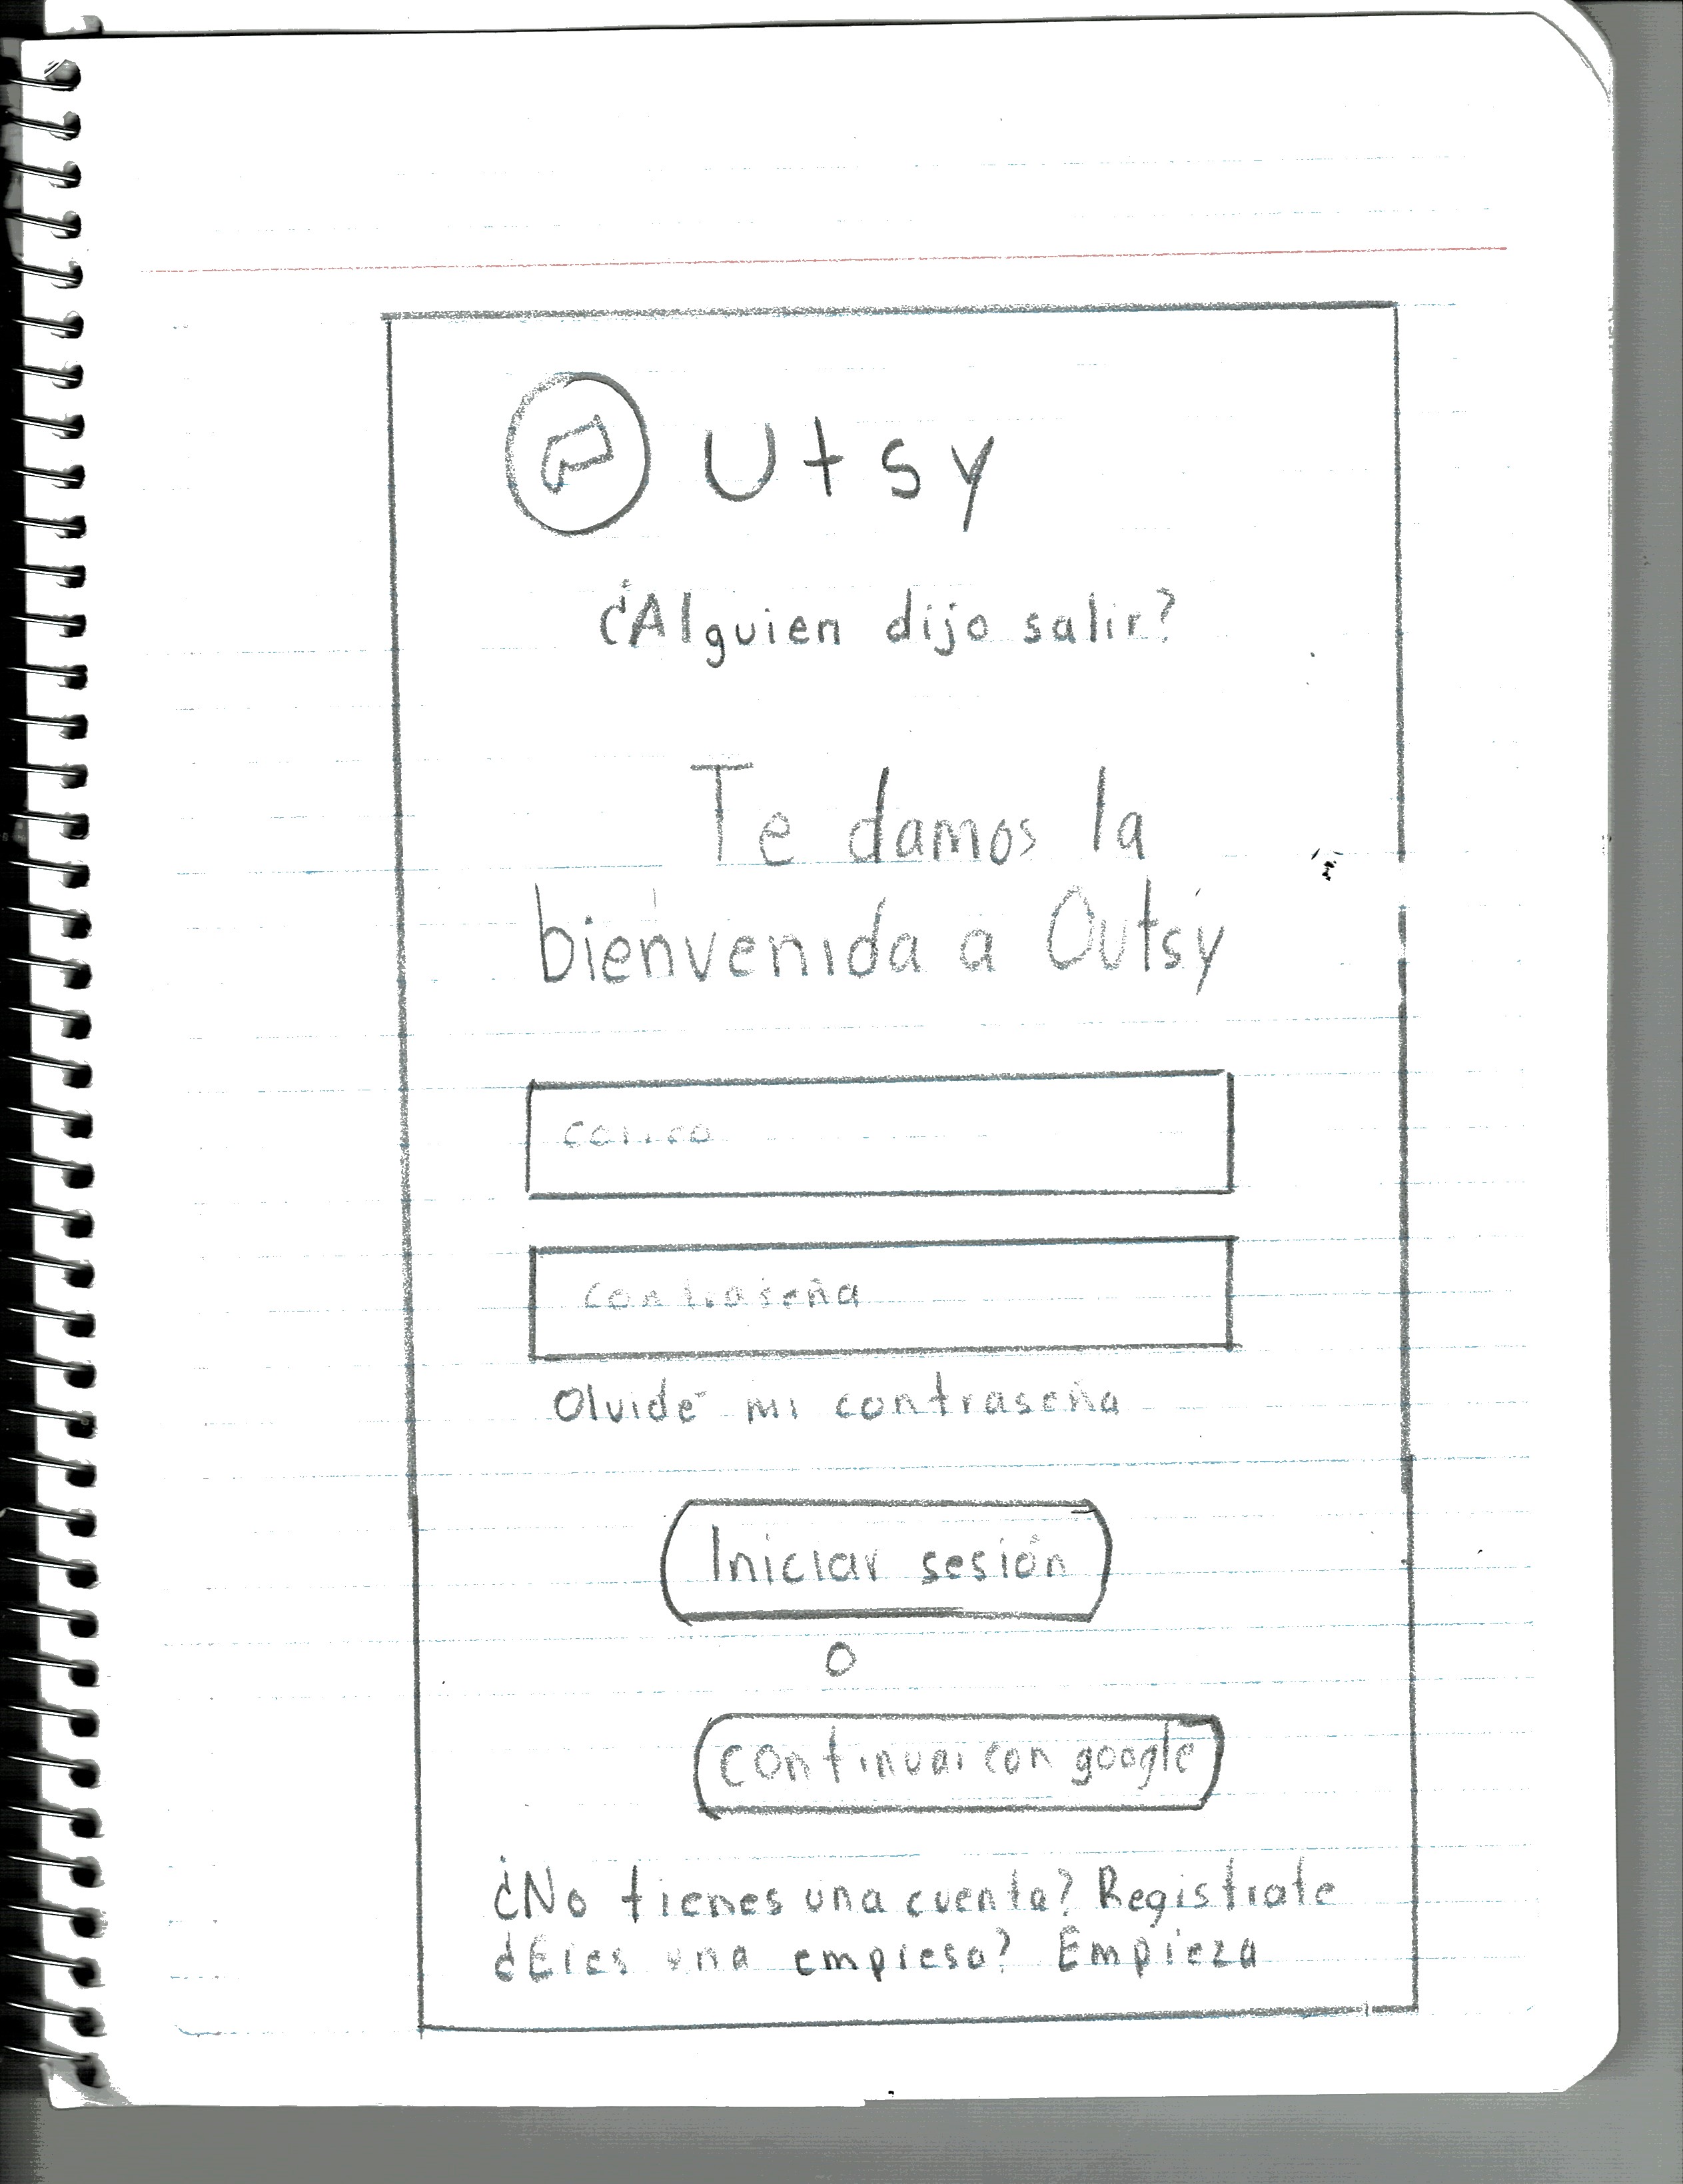 Outsy
¿Alguien dijo salir?
Te damos la
bienvenida a Outsy
correo
contraseña
Olvidé mi contraseña
Iniciar sesión
o
continuar con google
¿No tienes una cuenta? Registrate
¿Eres una empresa? Empieza